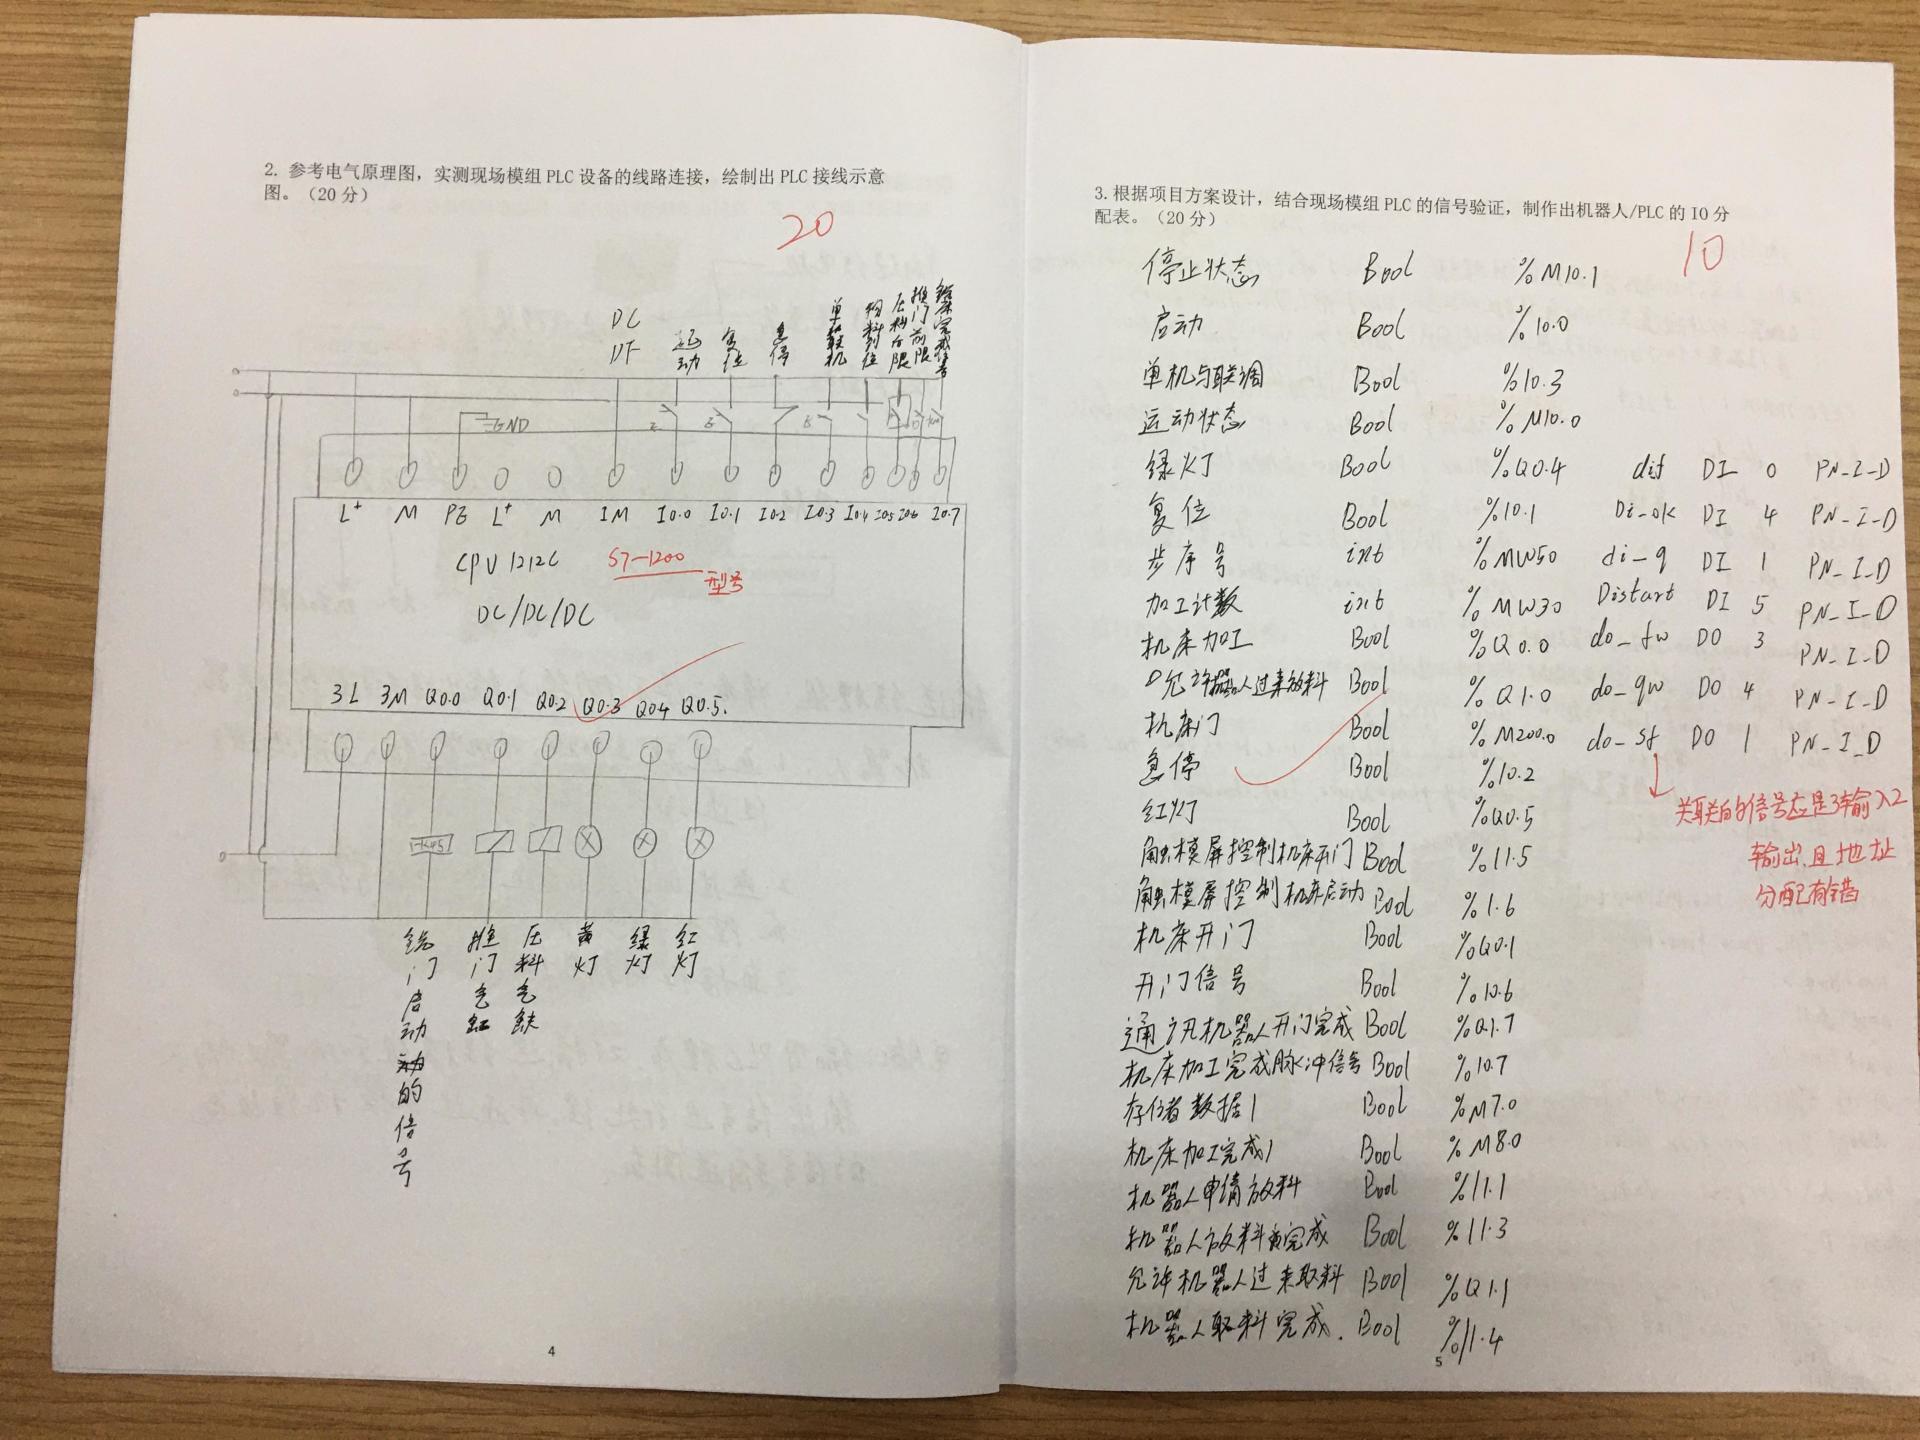 2. 参考电气原理图，实测现场模组 PLC 设备的线路连接，绘制出 PLC 接线示意
图。（20 分）
20
DC
运动 复位 急停 单机联机 物料到位
GND
L+ M PE L+ M 1M I0.0 I0.1 I0.2 I0.3 I0.4 I0.5 I0.6 I0.7
CPU 1212C S7-1200 型号
DC/DC/DC
3L 3M Q0.0 Q0.1 Q0.2 Q0.3 Q0.4 Q0.5.
推门气缸 黄灯 绿灯 红灯
4
3. 根据项目方案设计，结合现场模组 PLC 的信号验证，制作出机器人/PLC 的 IO 分
配表。（20 分）
10
停止状态 Bool %M10.1
启动 Bool %10.0
单机与联调 Bool %10.3
运动状态 Bool %M10.0
绿灯 Bool %Q0.4 DI 0 PN_I_D
复位 Bool %10.1 Di_ok DI 4 PN_I_D
步序号 int %MW50 di_q DI 1 PN_I_D
加工计数 int %MW30 Distart DI 5 PN_I_D
机床加工 Bool %Q0.0 do_fw DO 3 PN_I_D
允许机器人过来放料 Bool %Q1.0 do_qw DO 4 PN_I_D
机床门 Bool %M200.0 do_sf DO 1 PN_I_D
急停 Bool %10.2
红灯 Bool %Q0.5
关联的信号应是3输入2
输出、且地址
分配有错
触模屏控制机床开门 Bool %11.5
触模屏控制机床启动 Bool %1.6
机床开门 Bool %Q0.1
开门信号 Bool %10.6
通讯机器人开门完成 Bool %Q1.7
机床加工完成脉冲信号 Bool %10.7
存储数据1 Bool %M7.0
机床加工完成1 Bool %M8.0
机器人申请放料 Bool %11.1
机器人放料完成 Bool %11.3
允许机器人过来取料 Bool %Q1.1
机器人取料完成. Bool %11.4
5